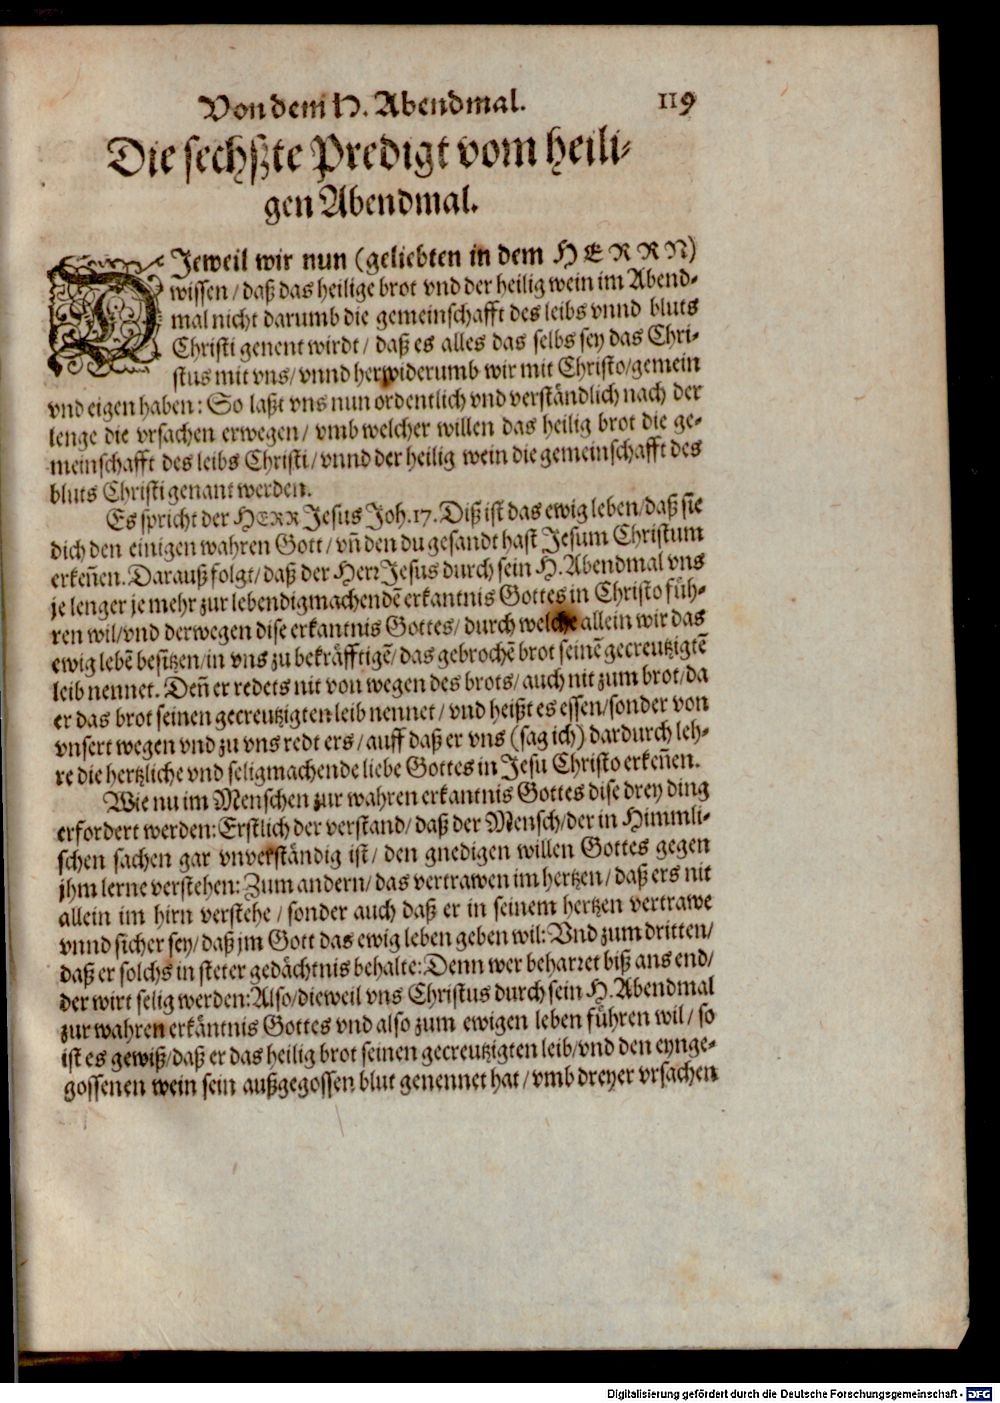 Von dem H. Abendmal. 119
Die sechßte Predigt vom heili-
gen Abendmal.
DJeweil wir nun (geliebten in dem HERRN)
wissen / daß das heilige brot vnd der heilig wein im Abend-
mal nicht darumb die gemeinschafft des leibs vnnd bluts
Christi genent wirdt / daß es alles das selbs sey das Chri-
stus mit vns / vnnd herwiderumb wir mit Christo / gemein
vnd eigen haben: So laßt vns nun ordentlich vnd verständlich nach der
lenge die vrsachen erwegen / vmb welcher willen das heilig brot die ge-
meinschafft des leibs Christi / vnnd der heilig wein die gemeinschafft des
bluts Christi genant werden.
Es spricht der HERR Jesus Joh. 17. Diß ist das ewig leben / daß sie
dich den einigen wahren Gott / vñ den du gesandt hast Jesum Christum
erkeñen. Darauß folgt / daß der Herr Jesus durch sein H. Abendmal vns
je lenger je mehr zur lebendigmachendē erkantnis Gottes in Christo füh-
ren wil / vnd derwegen dise erkantnis Gottes / durch welche allein wir das
ewig lebē besitzen / in vns zu bekräfftigē / das gebrochē brot seinē gecreutzigtē
leib nennet. Deñ er redets nit von wegen des brots / auch nit zum brot / da
er das brot seinen gecreutzigten leib nennet / vnd heißt es essen / sonder von
vnsert wegen vnd zu vns redt ers / auff daß er vns (sag ich) dardurch leh-
re die hertzliche vnd seligmachende liebe Gottes in Jesu Christo erkeñen.
Wie nu im Menschen zur wahren erkantnis Gottes dise drey ding
erfordert werden: Erstlich der verstand / daß der Mensch / der in Himmli-
schen sachen gar vnverständig ist / den gnedigen willen Gottes gegen
jhm lerne verstehen: Zum andern / das vertrawen im hertzen / daß ers nit
allein im hirn verstehe / sonder auch daß er in seinem hertzen vertrawe
vnnd sicher sey / daß jm Gott das ewig leben geben wil: Vnd zum dritten /
daß er solchs in steter gedächtnis behalte: Denn wer beharret biß ans end /
der wirt selig werden: Also / dieweil vns Christus durch sein H. Abendmal
zur wahren erkäntnis Gottes vnd also zum ewigen leben führen wil / so
ist es gewiß / daß er das heilig brot seinen gecreutzigten leib / vnd den eynge-
gossenen wein sein außgegossen blut genennet hat / vmb dreyer vrsachen
Digitalisierung gefördert durch die Deutsche Forschungsgemeinschaft - DFG